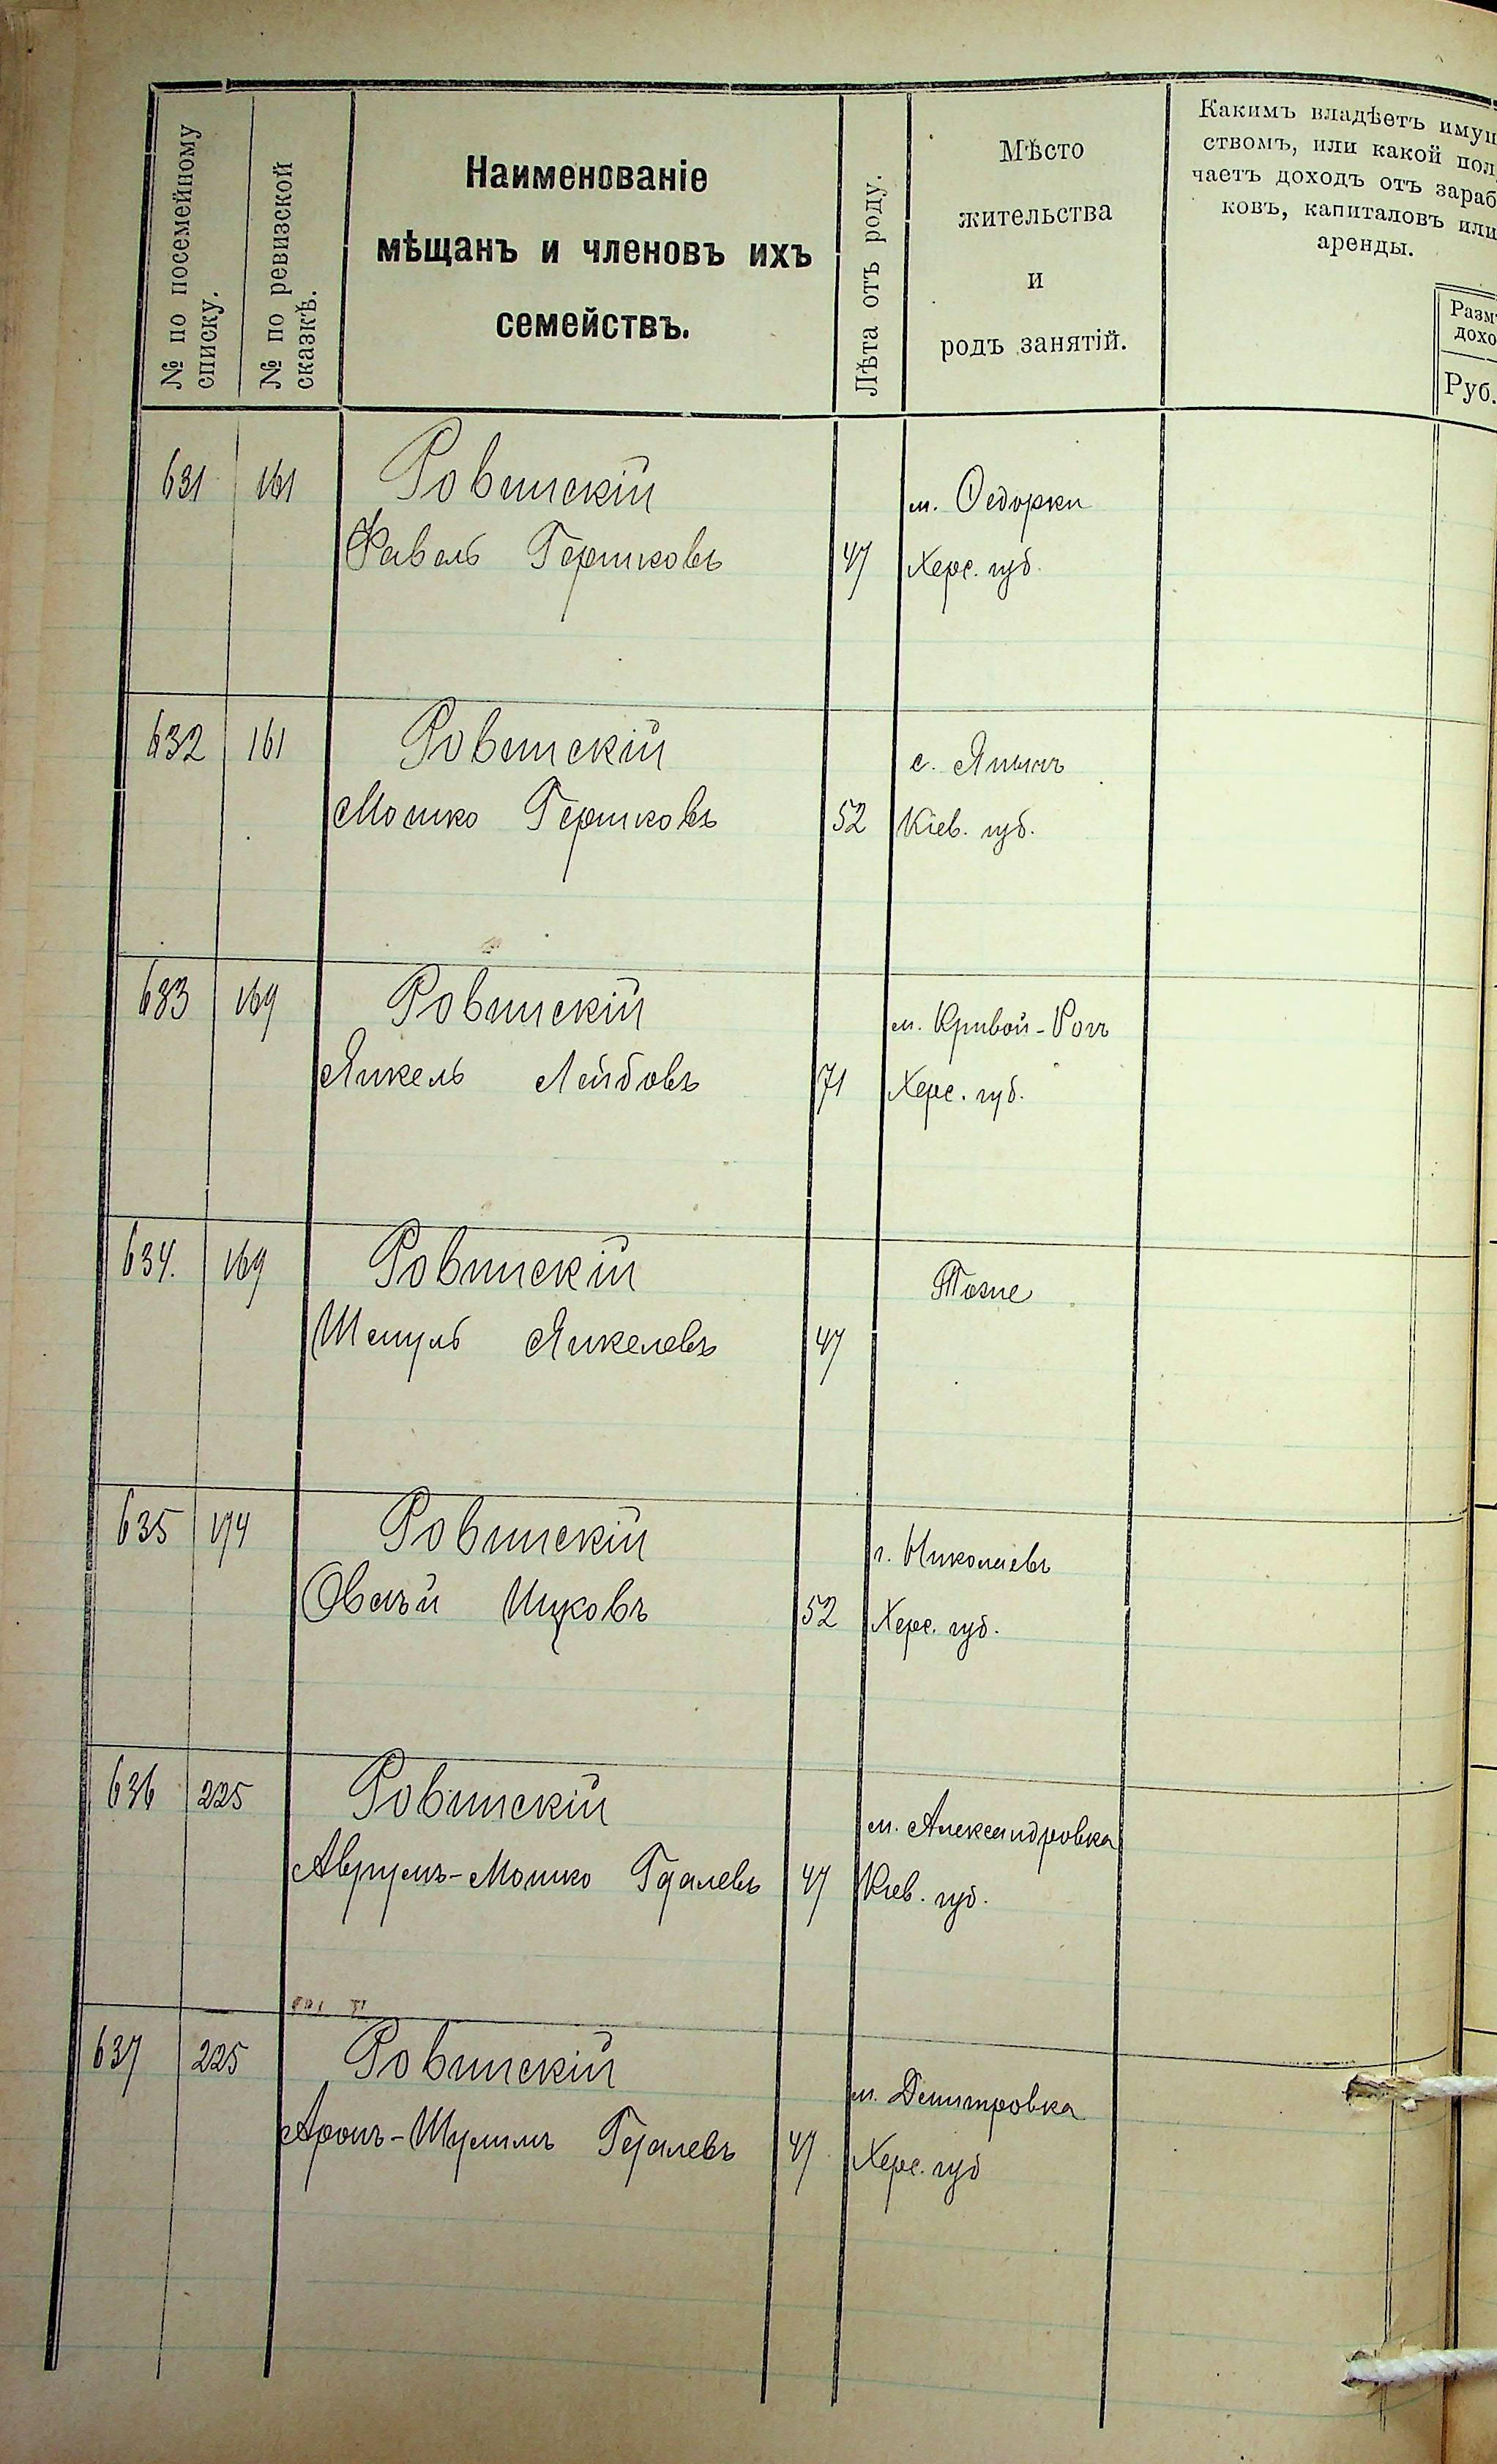 № по посемейному
списку.
№ по ревизской
сказкѣ.
Наименованіе
мѣщанъ и членовъ ихъ
семействъ.
Лѣта отъ роду.
Мѣсто
жительства
и
родъ занятій.
Какимъ владѣетъ имущ
ствомъ, или какой пол
чаетъ доходъ отъ зараб
ковъ, капиталовъ или
аренды.
Разм
дохо
Руб.
631 161 Ровинскій м. Ѳедорки
Файвель Гершковъ 47 Херс. губ.
632 161 Ровинскій с.
Мошко Гершковъ 52 Кіев. губ.
633 169 Ровинскій м. Кривой-Рогъ
Янкель Лейбовъ 71 Херс. губ.
634. 169 Ровинскій Тоже
Шмуль Янкелевъ 47
635 174 Ровинскій г. Николаевъ
Овсѣй Ицковъ 52 Херс. губ.
636 225 Ровинскій м. Александровка
Аврумъ-Мошко Гдалевъ 47 Кіев. губ.
637 225 Ровинскій м. Дмитровка
Аронъ-Шулимъ Гдалевъ 47 Херс. губ